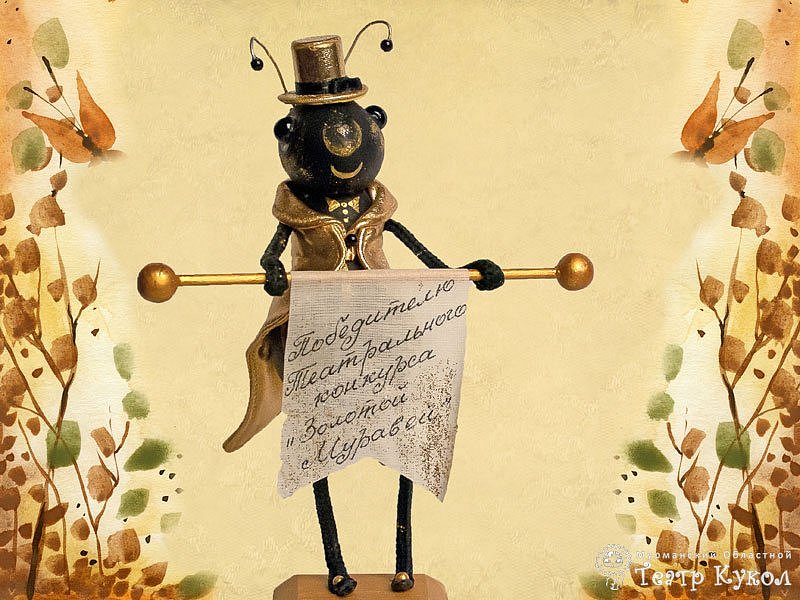 Победителю
Театрального
конкурса
"Золотой
Муравей"
Мурманский Областной
Театр Кукол